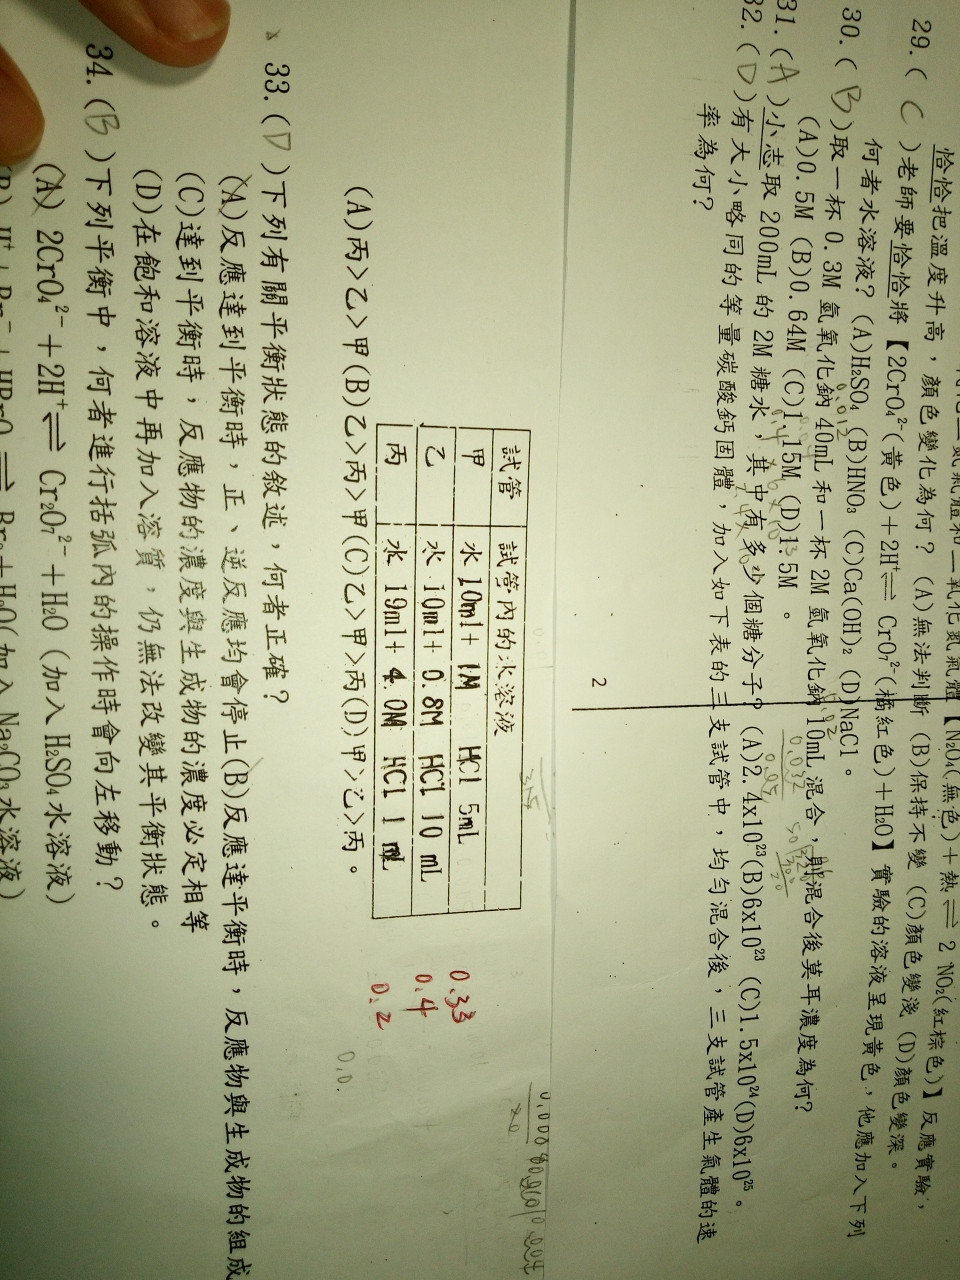 恰恰把溫度升高，顏色變化為何？(A)無法判斷 (B)保持不變 (C)顏色變淺 (D)顏色變深。
29.( C )老師要恰恰將【2CrO₄²⁻(黃色)＋2H⁺⇌ CrO₇²⁻(橘紅色)＋H₂O】實驗的溶液呈現黃色，他應加入下列
何者水溶液？(A)H₂SO₄ (B)HNO₃ (C)Ca(OH)₂ (D)NaCl。
30.( B )取一杯 0.3M 氫氧化鈉 40mL 和一杯 2M 氫氧化鈉 10mL 混合，則混合後莫耳濃度為何?
(A)0.5M (B)0.64M (C)1.15M (D)1.5M 。
31.( A )小志取 200mL 的 2M 糖水，其中有多少個糖分子? (A)2.4x10²³(B)6x10²³ (C)1.5x10²⁴(D)6x10²⁵ 。
32.( D )有大小略同的等量碳酸鈣固體，加入如下表的三支試管中，均勻混合後，三支試管產生氣體的速
率為何?
2
試管 試管內的水溶液
甲 水 10ml＋ 1M HCl 5mL 0.33
乙 水 10ml＋ 0.8M HCl 10 mL 0.4
丙 水 19ml＋ 4.0M HCl 1 mL 0.2
(A)丙>乙>甲(B)乙>丙>甲(C)乙>甲>丙(D)甲>乙>丙。
33.( D )下列有關平衡狀態的敘述，何者正確？
(A)反應達到平衡時，正、逆反應均會停止(B)反應達平衡時，反應物與生成物的組成
(C)達到平衡時，反應物的濃度與生成物的濃度必定相等
(D)在飽和溶液中再加入溶質，仍無法改變其平衡狀態。
34.( B )下列平衡中，何者進行括弧內的操作時會向左移動？
(A) 2CrO₄²⁻＋2H⁺⇌ Cr₂O₇²⁻＋H₂O (加入 H₂SO₄ 水溶液)